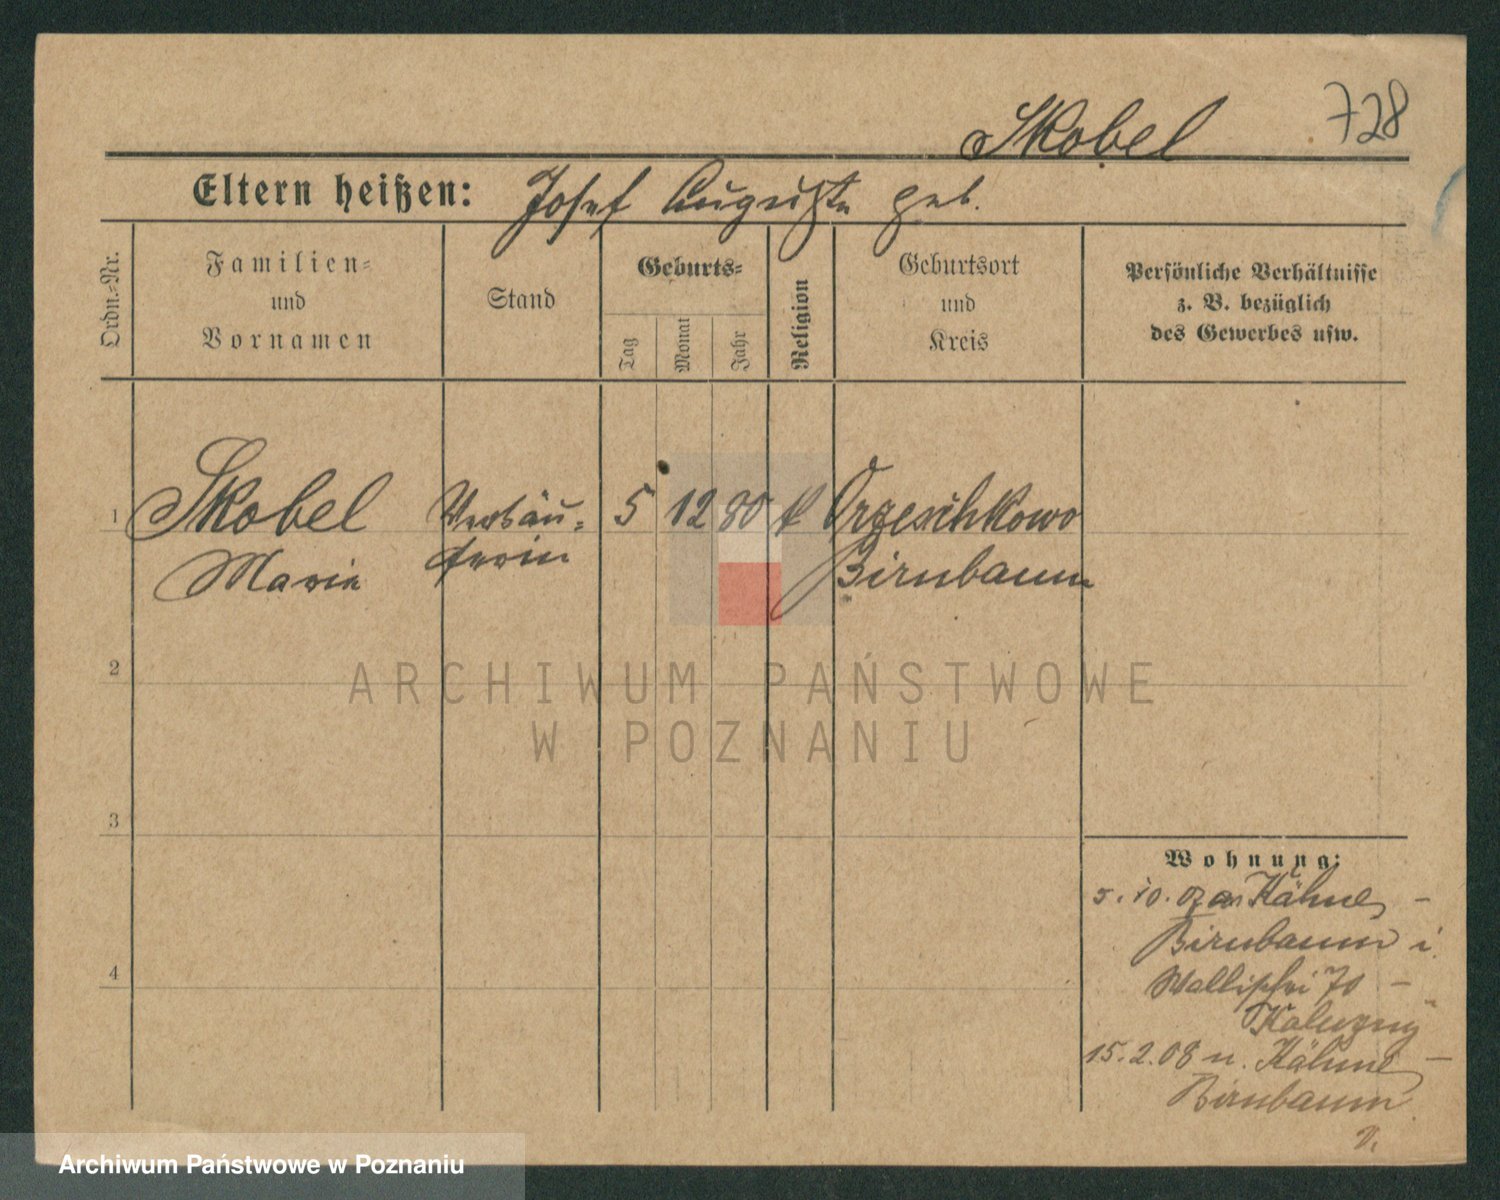 728
Skobel
Eltern heißen: Josef Auguste geb.
Ordn.-Nr.
Familien-
und
Vornamen
Stand
Geburts-
Tag
Monat
Jahr
Religion
Geburtsort
und
Kreis
Persönliche Verhältnisse
z. B. bezüglich
des Gewerbes usw.
1 Skobel Verkäu- 5 12 80 k Orzeschkowo
Marie ferin Birnbaum
2
3
4
Wohnung:
5.10.07 Kähne –
Birnbaum i
Wallischei 70 –
Kaluzny
15.2.08 n. Kähne –
Birnbaum
V.
ARCHIWUM PAŃSTWOWE
W POZNANIU
Archiwum Państwowe w Poznaniu